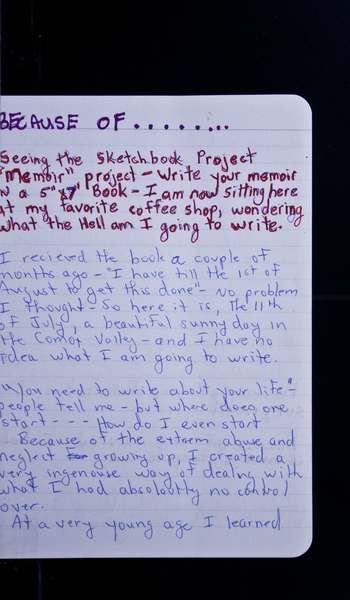 BECAUSE OF........
Seeing the Sketchbook Project
"Memoir" project - Write your memoir
in a 5"x7" Book - I am now sitting here
at my favorite coffee shop, wondering
what the Hell am I going to write.
I recieved the book a couple of
months ago - "I have till the 1st of
August to get this done" - No problem
I thought - So here it is, The 11th
of July, a beautiful sunny day in
the Comox Valley - and I have no
idea what I am going to write.
"You need to write about your life" -
people tell me - but where does one
start - - - How do I even start
Because of the extrem abuse and
neglect growing up, I created a
very ingenouse way of dealing with
what I had absoloutly no control
over.
At a very young age I learned